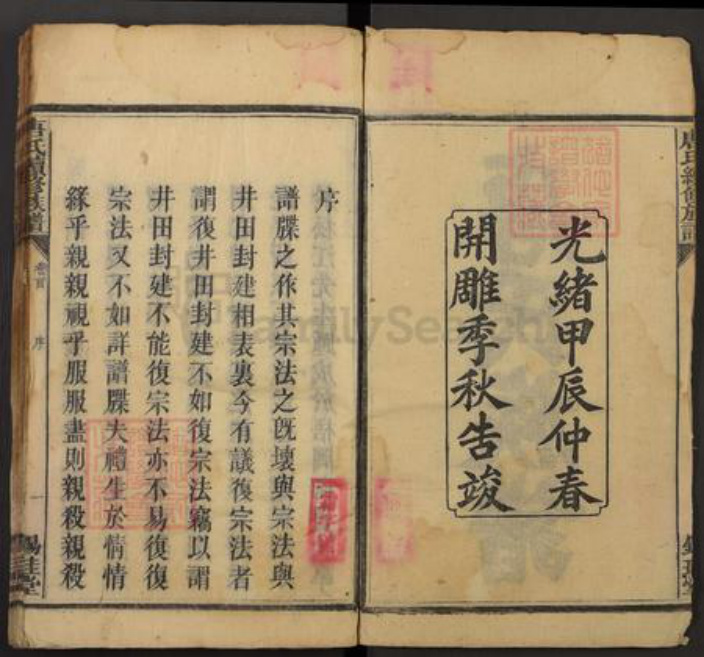 光緒甲辰仲春
開雕季秋告竣
序
譜牒之作其宗法之既壞與宗法與
井田封建相表裏今有議復宗法者
謂復井田封建不如復宗法竊以謂
井田封建不能復宗法亦不易復復
宗法又不如詳譜牒夫禮生於情情
緣乎親親視乎服服盡則親殺親殺
唐氏續修族譜
卷首
序
一
錫珪堂
唐氏續修族譜
FamilySearch